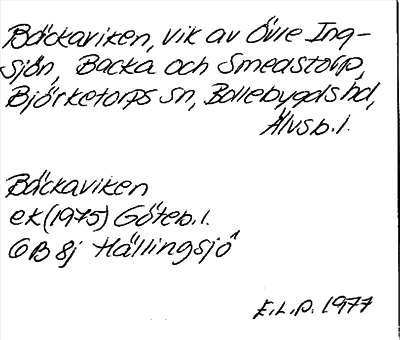 Bäckaviken, vik av Övre Ing-
sjön, Backa och Smeastorp,
Björketorps sn, Bollebygds hd,
Älvsb. l.
Bäckaviken
ek (1975) Göteb. l.
6B 8j Hällingsjö
E.L.P. 1977